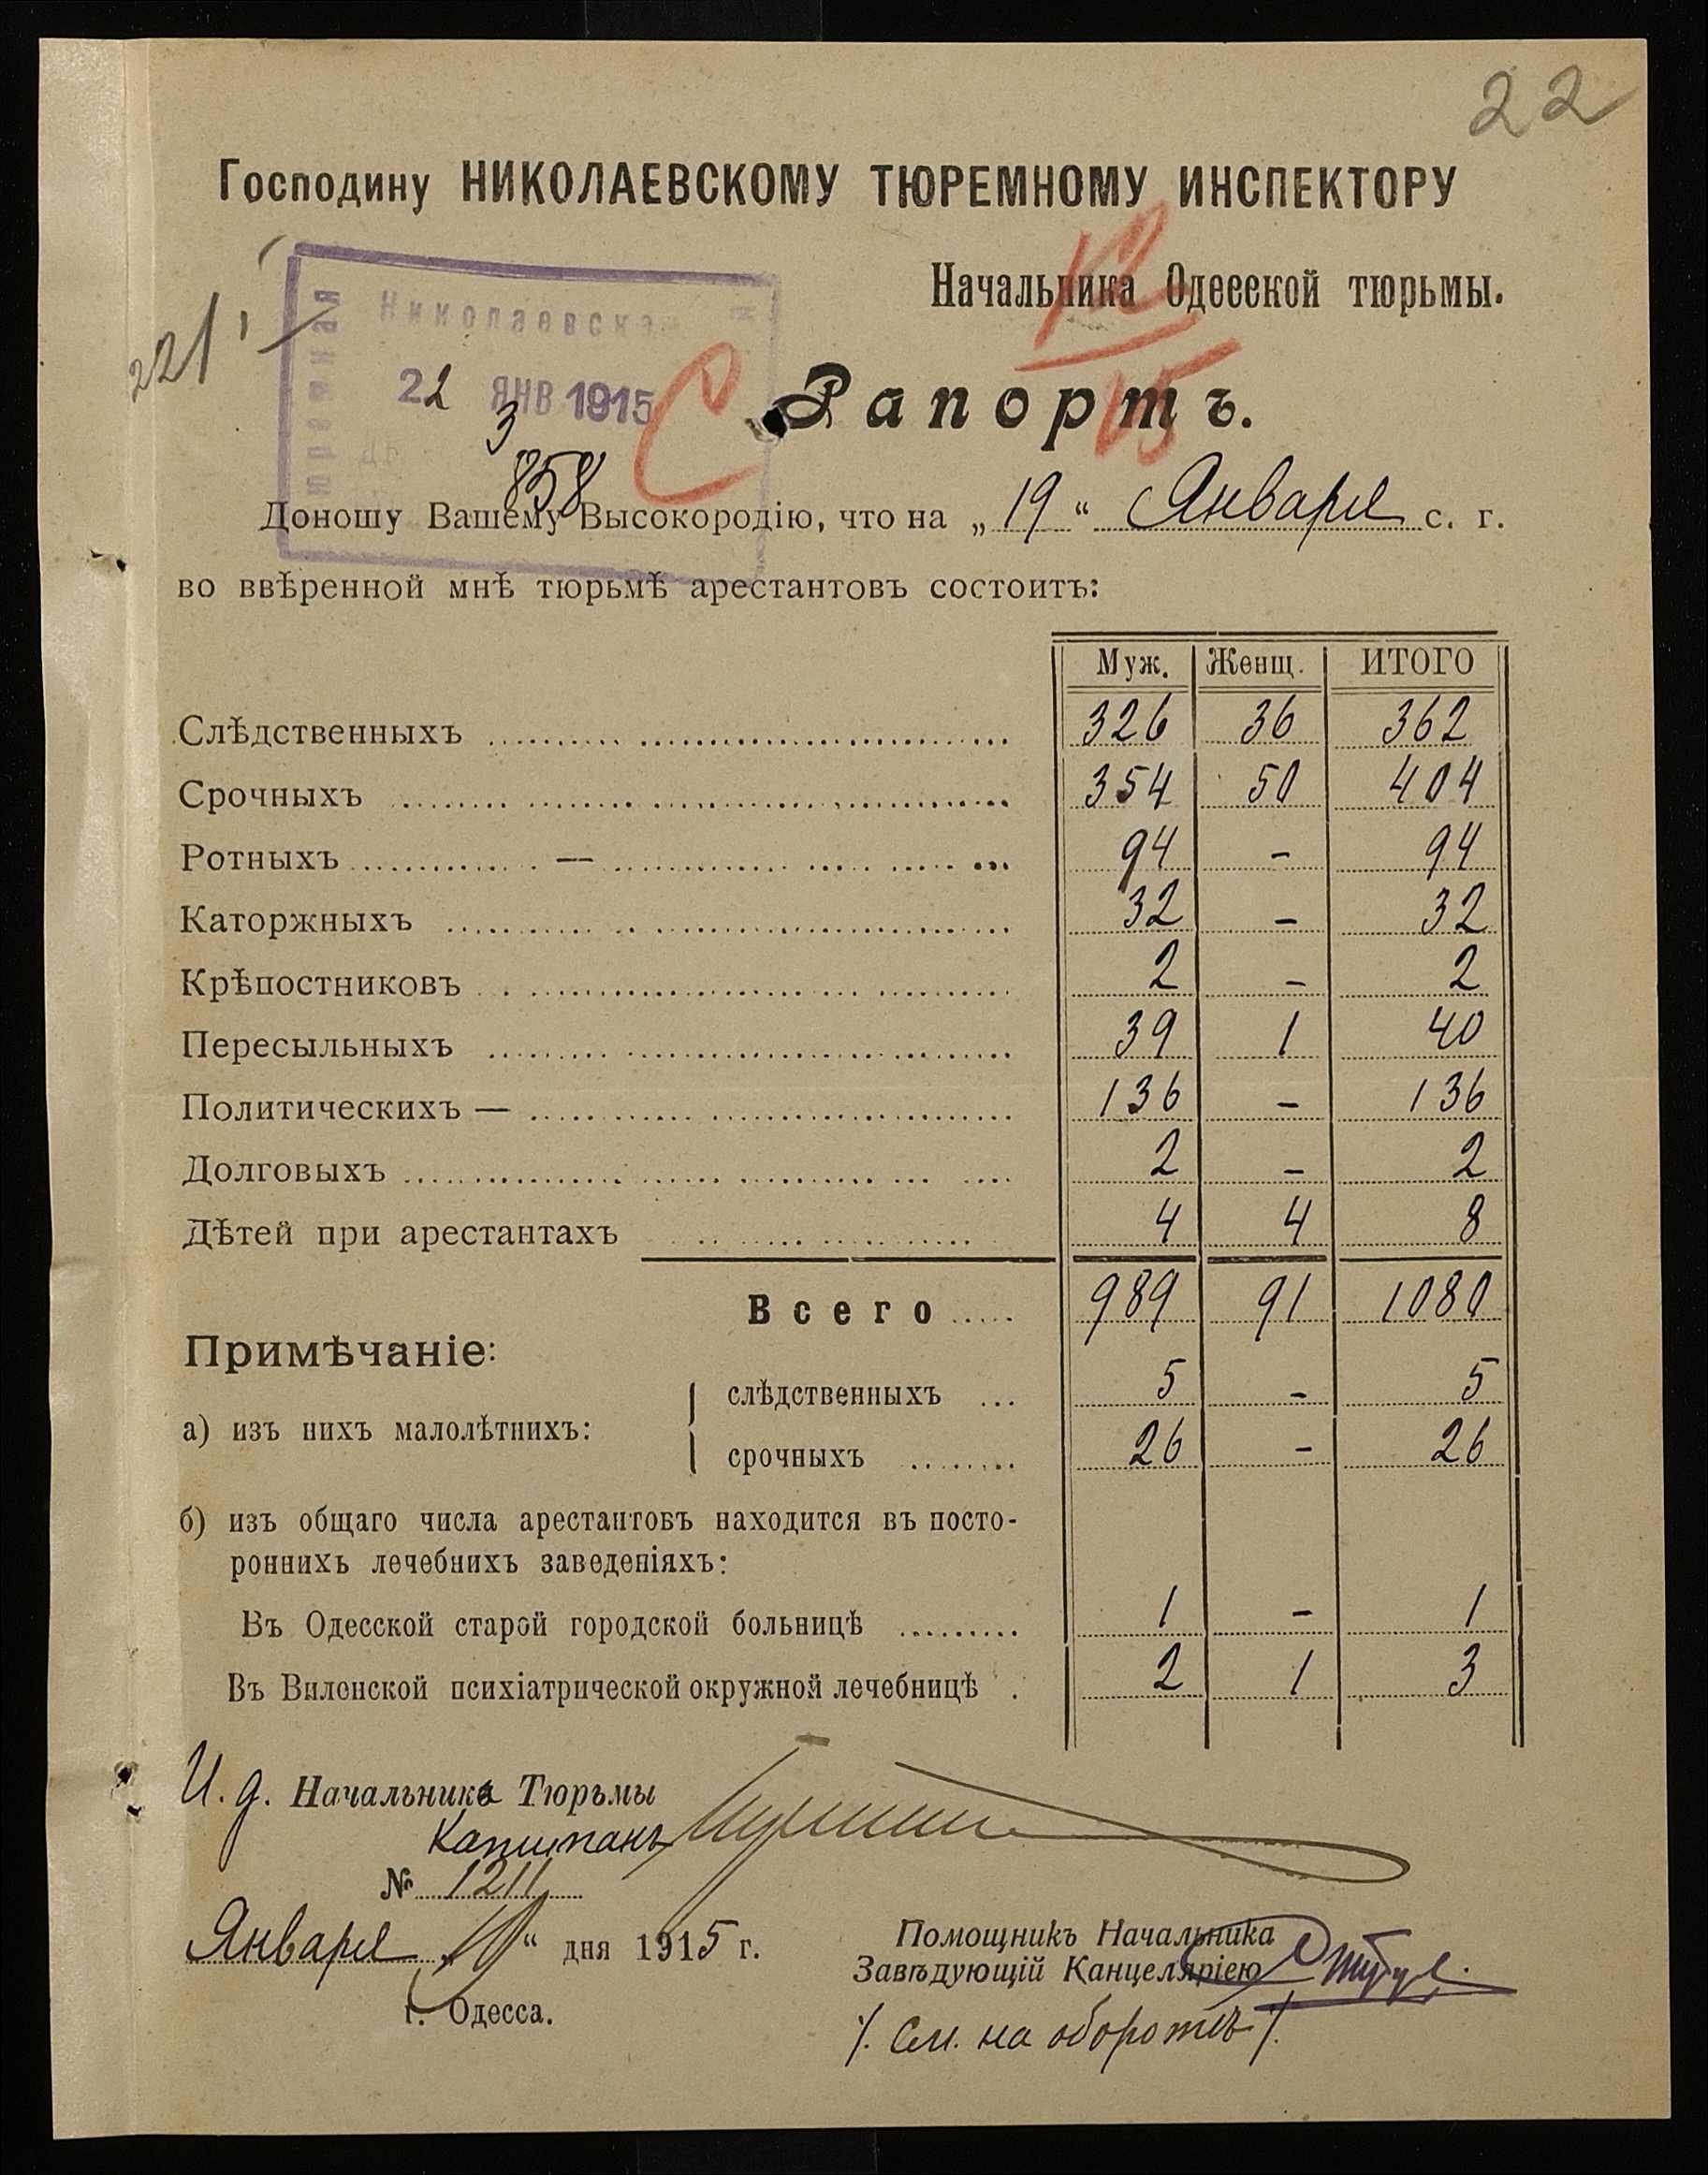 22
Господину НИКОЛАЕВСКОМУ ТЮРЕМНОМУ ИНСПЕКТОРУ
Начальника Одесской тюрьмы.
221
Николаевская
22 ЯНВ 1915
3
858
Рапортъ.
Доношу Вашему Высокородію, что на „19“ Января с. г.
во ввѣренной мнѣ тюрьмѣ арестантовъ состоитъ:
Муж. Женщ. ИТОГО
Слѣдственныхъ 326 36 362
Срочныхъ 354 50 404
Ротныхъ — 94 - 94
Каторжныхъ 32 - 32
Крѣпостниковъ 2 - 2
Пересыльныхъ 39 1 40
Политическихъ — 136 - 136
Долговыхъ 2 - 2
Дѣтей при арестантахъ 4 4 8
Всего 989 91 1080
Примѣчаніе:
а) изъ нихъ малолѣтнихъ:
слѣдственныхъ 5 - 5
срочныхъ 26 - 26
б) изъ общаго числа арестантовъ находится въ посто-
роннихъ лечебнихъ заведеніяхъ:
Въ Одесской старой городской больницѣ 1 - 1
Въ Виленской психіатрической окружной лечебницѣ 2 1 3
И. д. Начальника Тюрьмы
Капитанъ
№ 1211
Января „19“ дня 1915 г.
г. Одесса.
Помощникъ Начальника
Завѣдующій Канцеляріею
/. См. на оборотѣ /.